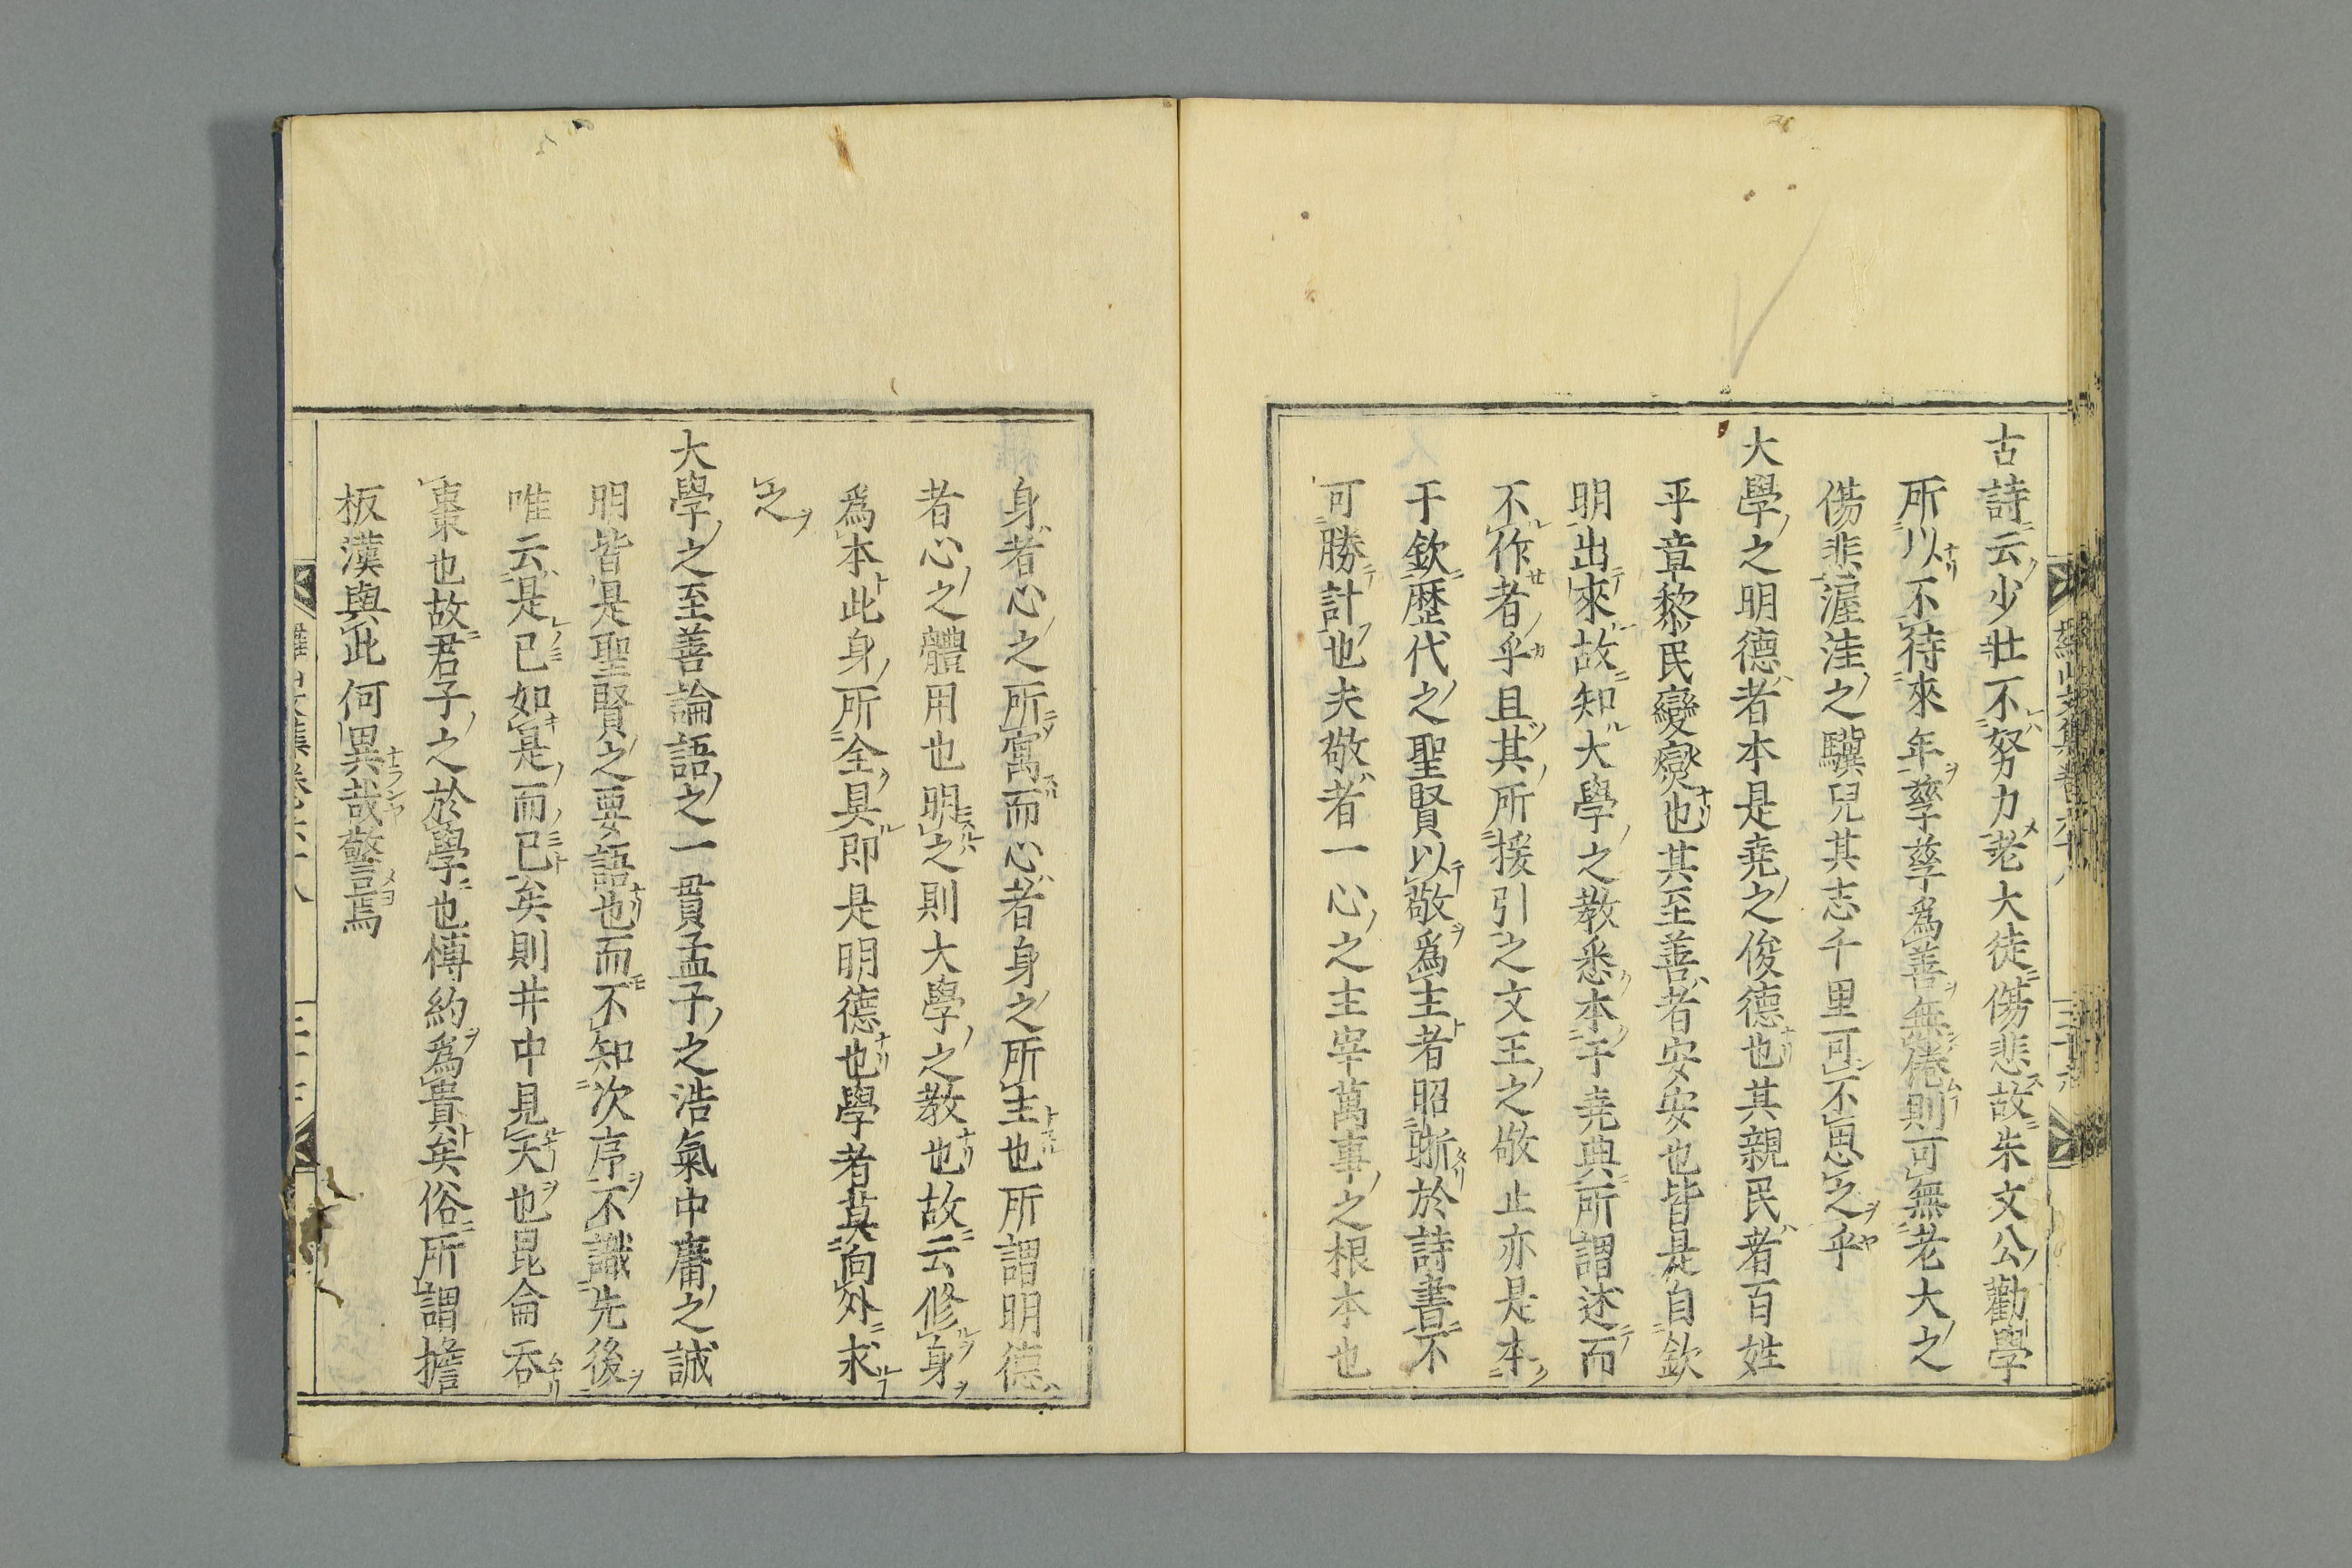 古詩云少壯不努力老大徒傷悲故朱文公勸學
所以不待來年孳孳爲善無倦則可無老大之
傷悲渥洼之驥兒其志千里可不思之乎
大學之明德者本是堯之俊德也其親民者百姓
平章黎民變燮也其至善者安安也皆是自欽
明出來故知大學之敎悉本于堯典所謂述而
不作者乎且其所援引之文王之敬止亦是本
于欽歷代之聖賢以敬爲主者昭晰於詩書不
可勝計也夫敬者一心之主宰萬事之根本也
身者心之所寓而心者身之所主也所謂明德
者心之體用也明之則大學之敎也故云修身
爲本此身所全具即是明德也學者莫向外求
之
大學之至善論語之一貫孟子之浩氣中庸之誠
明皆是聖賢之要語也而不知次序不識先後
唯云是已如是而已矣則井中見天也昆侖吞
棗也故君子之於學也博約爲貴矣俗所謂擔
板漢與此何異哉警焉